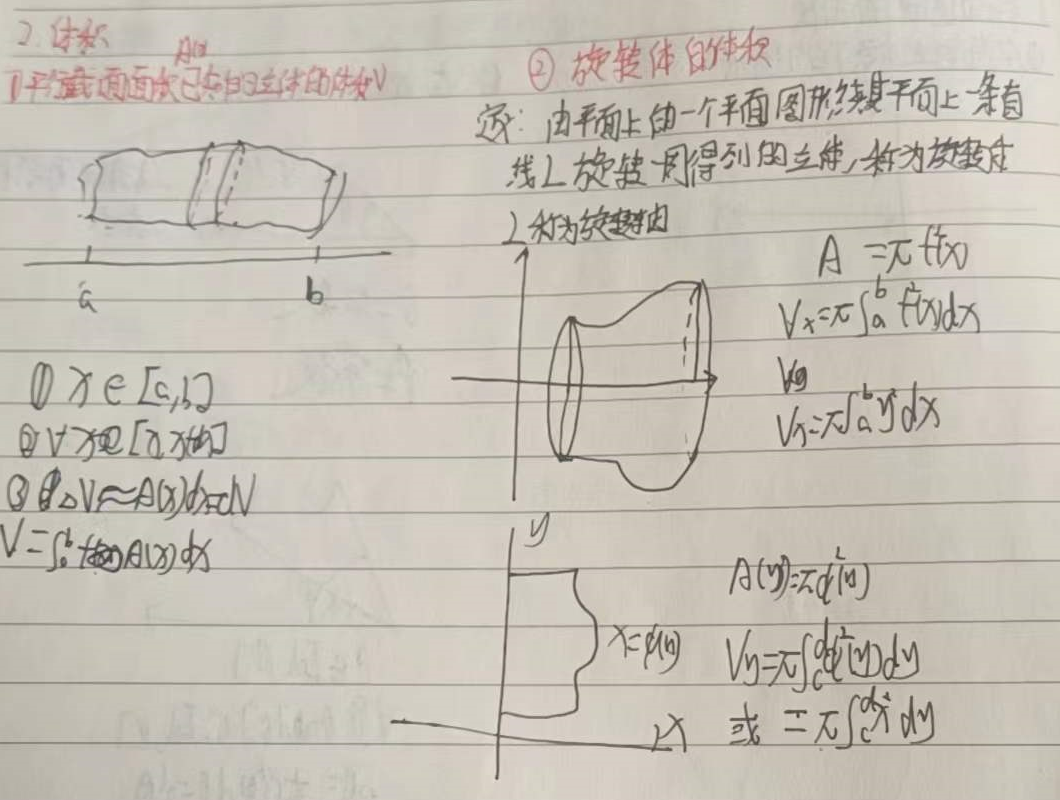 2. 体积
A(x)
①平行截面面积已知的立体的体积V
a
b
① x ∈ [a,b]
② ∀ x ∈ [x, x+dx]
③ ΔV≈A(x)dx=dV
V=∫ₐᵇ A(x)dx
② 旋转体的体积
定义: 由平面上的一个平面图形绕其平面上一条直
线L旋转一周得到的立体,称为旋转体
L称为旋转轴
A =πf²(x)
Vx=π∫ₐᵇ f²(x)dx
Vx=π∫ₐᵇ y²dx
y
x=φ(y)
x
A(y)=πφ²(y)
Vy=π∫_c^d φ²(y)dy
或 =π∫_c^d x²dy